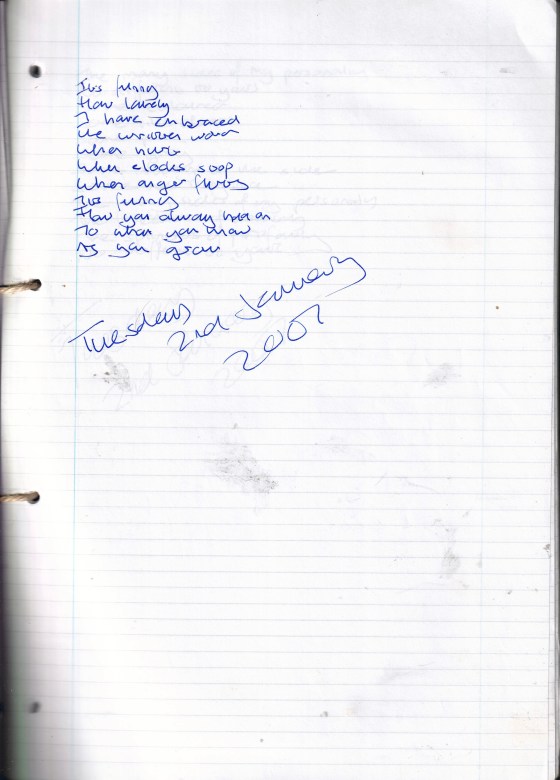 Its funny
How lately
I have embraced
The written word
When
When clocks stop
When anger
Its funny
How you always
To what you know
As you grow
Tuesday
2nd January
2007